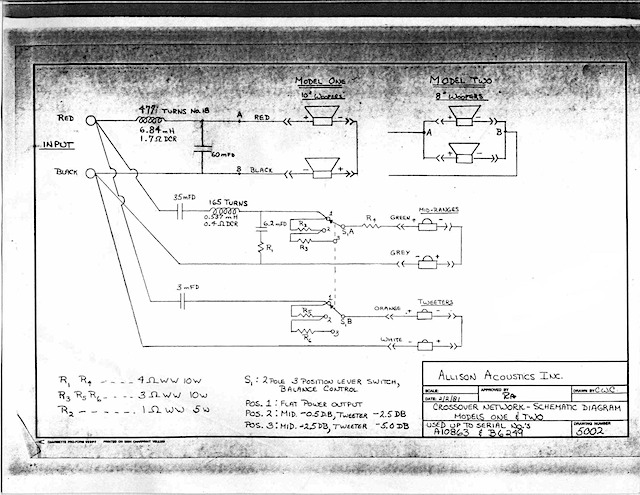 MODEL ONE
10" WOOFERS
MODEL TWO
8" WOOFERS
RED
INPUT
BLACK
TURNS No. 18
6.84 mH
1.7 Ω DCR
60 MFD
A RED
B BLACK
+ -
- +
A B
+ -
+ -
35 MFD
165 TURNS
0.537 mH
0.4 Ω DCR
6.2 MFD
R1
1
R2 2
R3 3
S1A
R4
GREEN +
MID-RANGES
-
GREY
- +
3 MFD
1
R5 2
R6 3
S1B
ORANGE +
TWEETERS
-
WHITE - +
R1 R4 ---- 4 Ω WW 10W
R3 R5 R6 --- 3 Ω WW 10W
R2 ------- 1 Ω WW 5W
S1: 2 POLE 3 POSITION LEVER SWITCH,
BALANCE CONTROL
POS. 1: FLAT POWER OUTPUT
POS. 2: MID. -0.5 DB, TWEETER -2.5 DB
POS. 3: MID. -2.5 DB, TWEETER -5.0 DB
ALLISON ACOUSTICS INC.
SCALE:
APPROVED BY
RA
DRAWN BY CWC
DATE: 2/2/81
CROSSOVER NETWORK - SCHEMATIC DIAGRAM
MODELS ONE & TWO
USED UP TO SERIAL NO.'S
A10863 & B6249
DRAWING NUMBER
5002